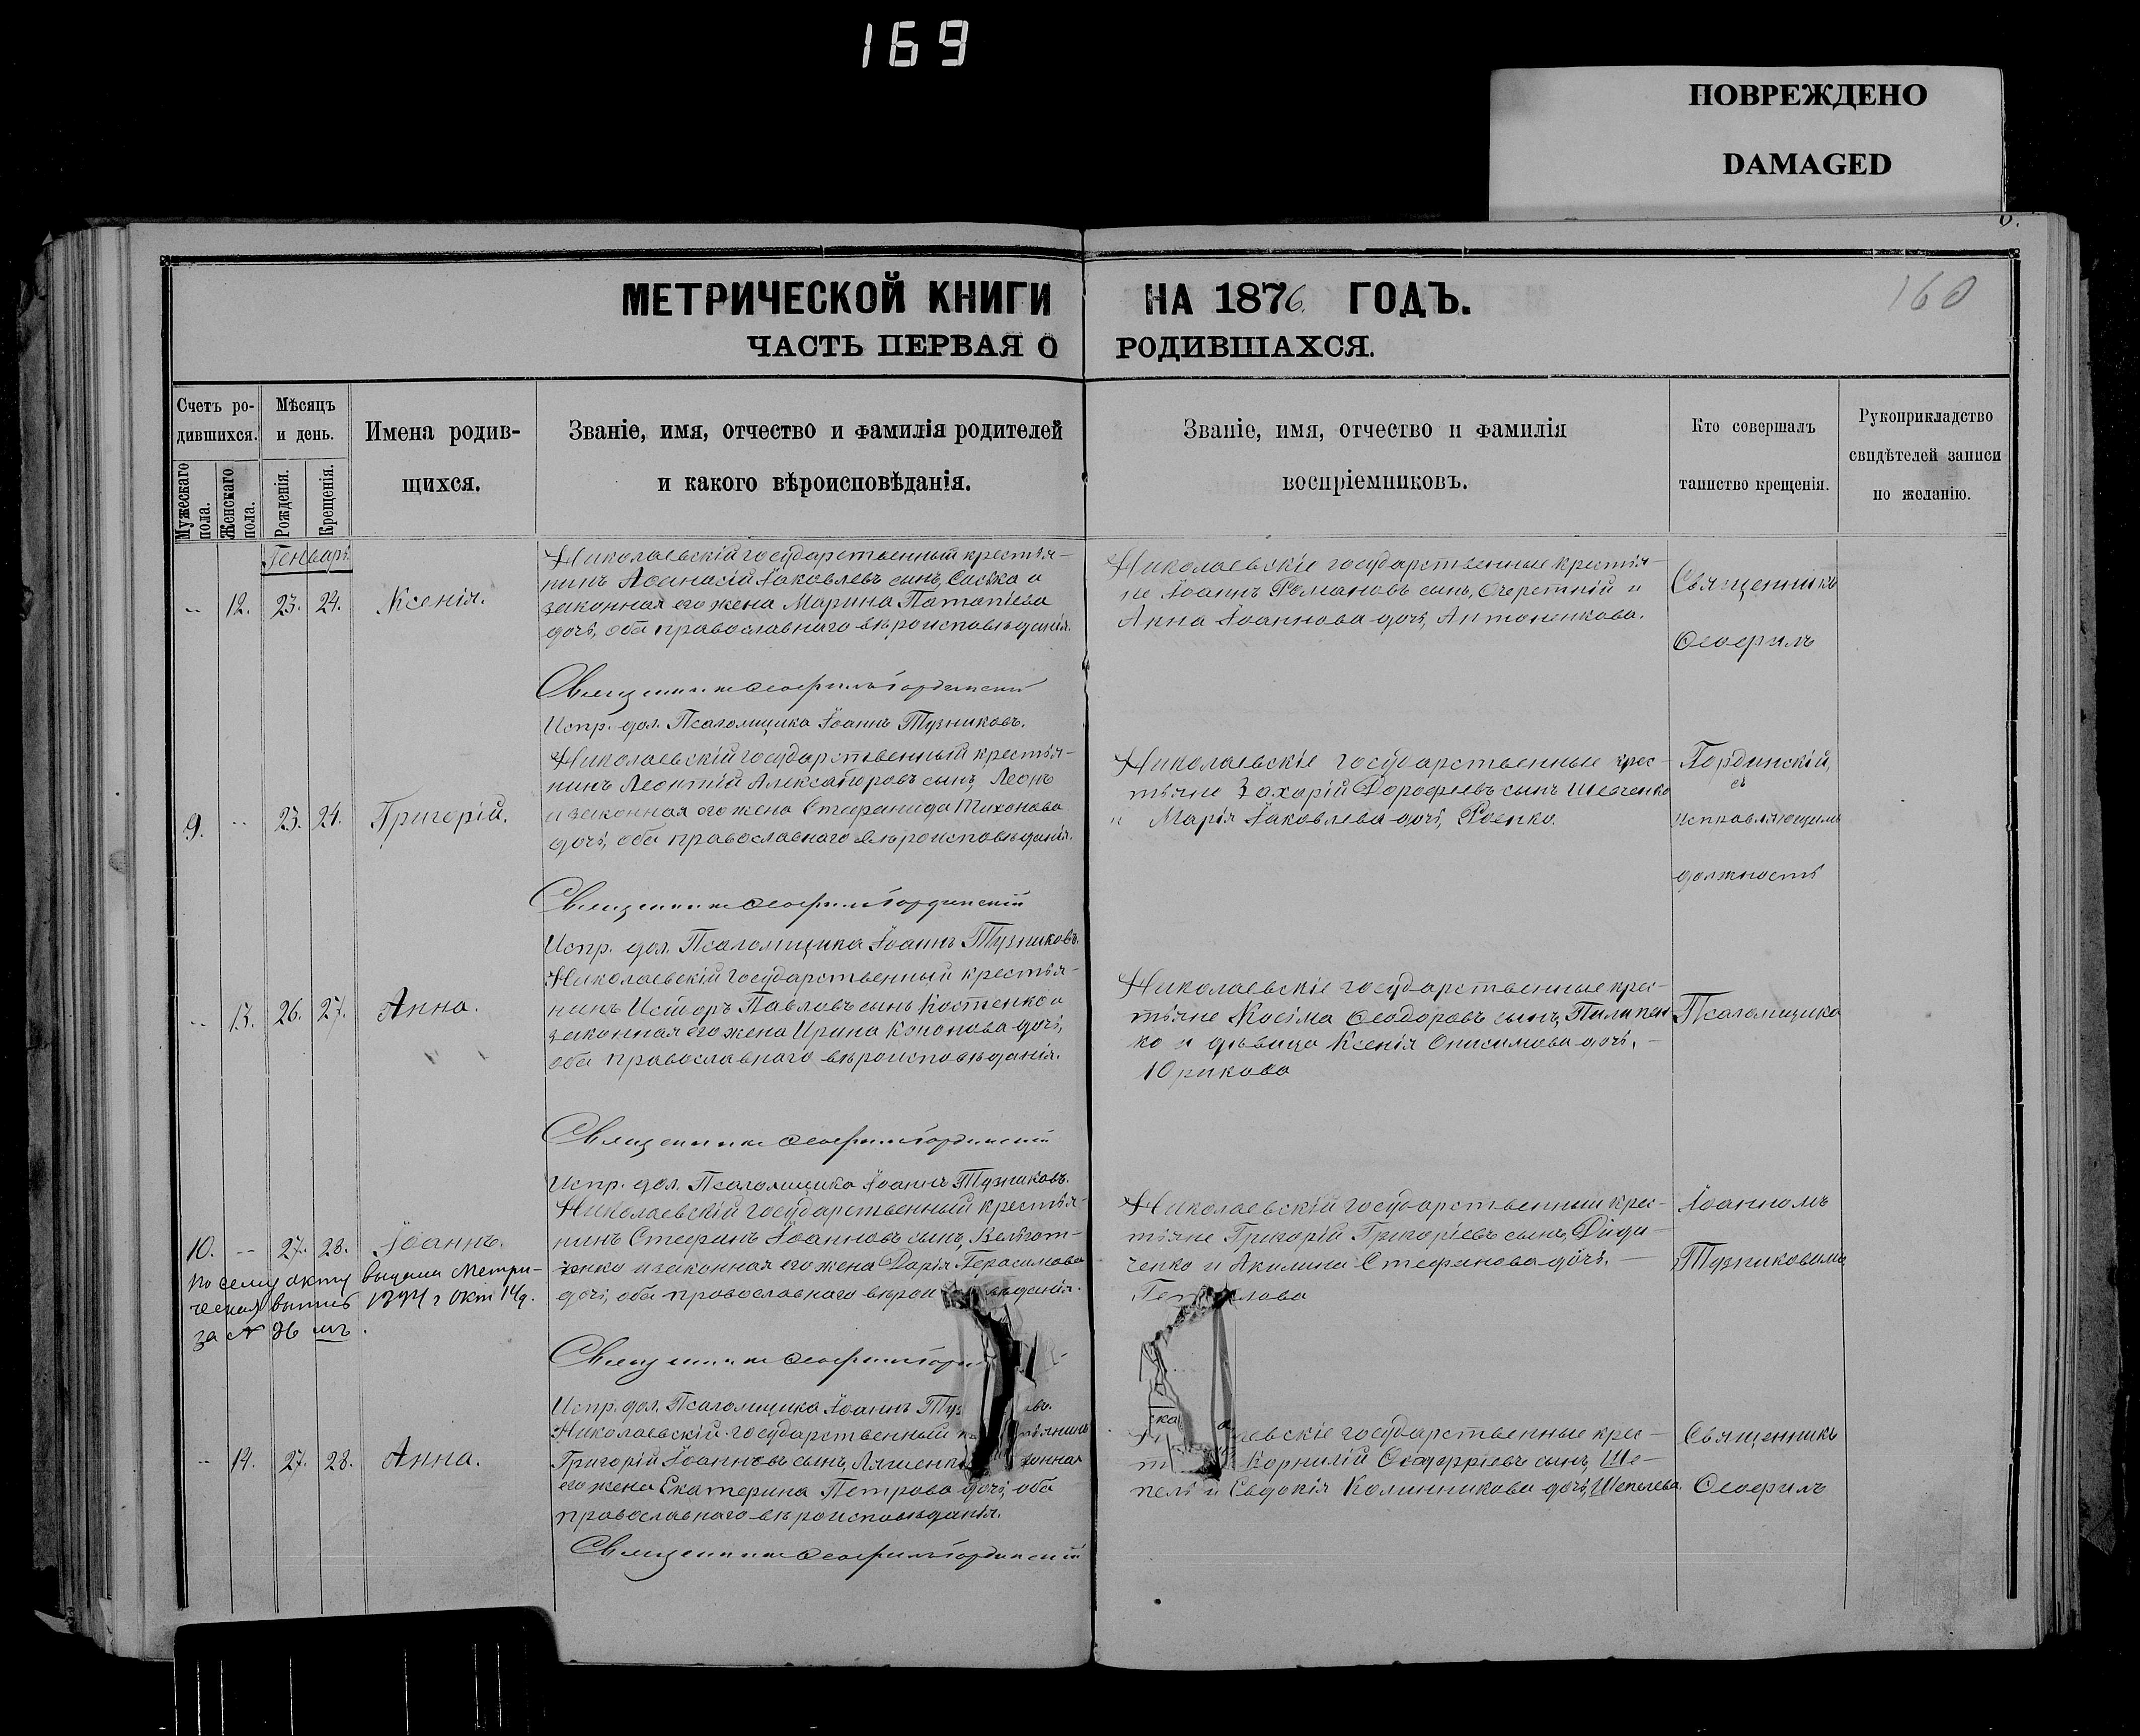 169
ПОВРЕЖДЕНО
DAMAGED
160
МЕТРИЧЕСКОЙ КНИГИ НА 1876. ГОДЪ.
ЧАСТЬ ПЕРВАЯ О РОДИВШАХСЯ.
Счетъ ро-
дившихся.
Мужескаго пола.
Женскаго пола.
Мѣсяцъ
и день.
Рожденія.
Крещенія.
Имена родив-
щихся.
Званіе, имя, отчество и фамилія родителей
и какого вѣроисповѣданія.
Званіе, имя, отчество и фамилія
воспріемниковъ.
Кто совершалъ
таинство крещенія.
Рукоприкладство
свидѣтелей записи
по желанію.
Генварь
-- 12. 23. 24. Ксенія.
Николаевскій государственный крестья-
нинъ Аѳанасій Іаковлевъ сынъ, Саѣка и
законная его жена Марина Потапіева
дочь, оба православнаго вѣроисповѣданія.
Николаевскіе государственные крестья-
не Іоаннъ Романовъ сынъ, Очеретній и
Анна Іоаннова дочь, Антоненкова.
Священникъ
Ѳеофилъ
Священникъ Ѳеофилъ Гординскій
Испр. дол. Псаломщика Іоаннъ Тузниковъ.
9. -- 23. 24. Григорій.
Николаевскій государственный крестья-
нинъ Леонтій Александровъ сынъ, Леонъ
и законная его жена Стефанида Тихонова
дочь, оба православнаго вѣроисповѣданія.
Николаевскіе государственные крес-
тьяне Захарій Дорофеевъ сынъ Шевченко
и Марія Іаковлева дочь, Роенко.
Гординскій,
съ
исправляющимъ
должность
Священникъ Ѳеофилъ Гординскій
Испр. дол. Псаломщика Іоаннъ Тузниковъ.
-- 13. 26. 27. Анна.
Николаевскій государственный крестья-
нинъ Исидоръ Павловъ сынъ Костенко и
законная его жена Ирина Кононова дочь,
оба православнаго вѣроисповѣданія.
Николаевскіе государственные крес-
тьяне Косьма Ѳеодоровъ сынъ, Пилипен
ко и дѣвица Ксенія Онисимова дочь,
Юрикова
Псаломщика
Священникъ Ѳеофилъ Гординскій
Испр. дол. Псаломщика Іоаннъ Тузниковъ.
10. -- 27. 28. Іоаннъ.
Николаевскій государственный крестья-
нинъ Стефанъ Іоанновъ сынъ,
и законная его жена Дарія Герасимова
дочь, оба православнаго вѣрои вѣданія.
По сему акту выдана Метри-
ческая выпись г Окт 14д.
за № 36 мъ.
Николаевскій государственный крес-
тьяне Григорій Григоріевъ сынъ, Диди-
ченко и Акилина Стефанова дочь,
Іоанномъ
Тузниковымъ
Священникъ Ѳеофилъ
Испр. дол. Псаломщика Іоаннъ Туз
-- 14. 27. 28. Анна.
Николаевскій государственный
Григорій Іоанновъ сынъ, Ляшенк
его жена Екатерина Петрова дочь, оба
православнаго вѣроисповѣданія.
аевскіе государственные крес-
Корнилій сынъ, Ше-
пель и Евдокія Калинникова дочь, Шепелева.
Священникъ
Ѳеофилъ
Священникъ Ѳеофилъ Гординскій